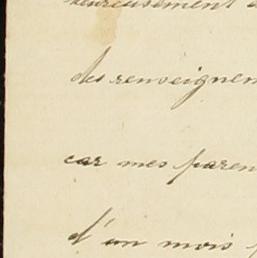 heureusement
des renseignem
car mes paren
d'un mois